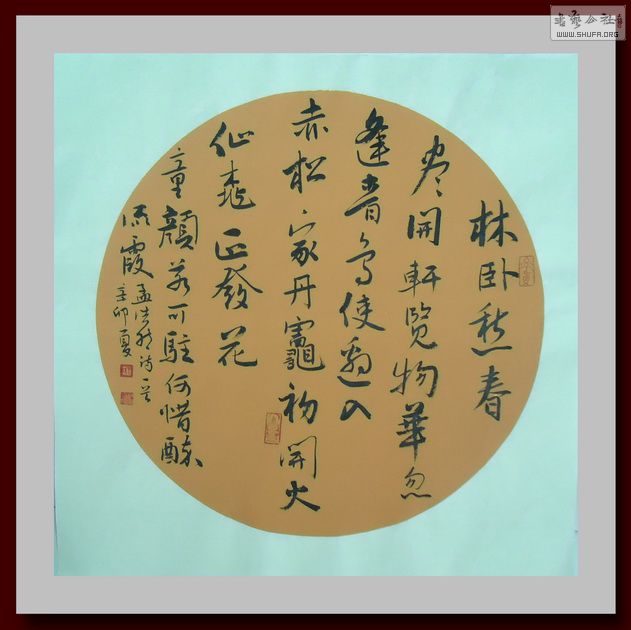 林卧愁春
尽開軒覽物華忽
逢青鳥使邀入
赤松家丹竈初開火
仙桃正發花
童顔若可駐何惜醉
流霞 孟浩然诗一首
辛卯夏
書藝公社
WWW.SHUFA.ORG